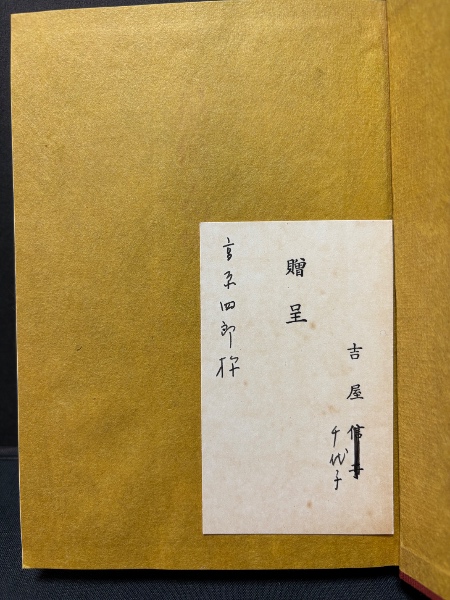 吉屋信子
千代子
贈呈
高原四郎様